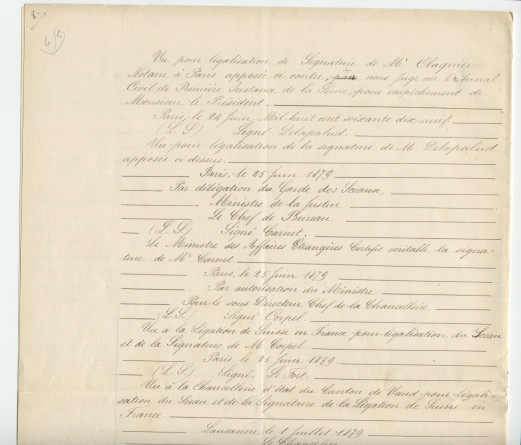 Vu pour légalisation de Signature de Mr Olagnier
Notaire à Paris apposée ci contre, par nous Juge au Tribunal
Civil de Première Instance de la Seine, pour empêchement de
Monsieur le Président.
Paris, le 24 Juin, Mil huit cent soixante dix neuf.
(L. S) Signé Delapalud.
Vu pour légalisation de la signature de M. Delapalud
apposée ci dessus.
Paris, le 25 Juin 1879
Par délégation du Garde des Sceaux,
Ministre de la Justice
Le Chef de Bureau
(L. S) Signé Carnet.
Le Ministre des Affaires Etrangères Certifie véritable la signa-
ture de Mr Carnet
Paris, le 25 Juin 1879
Par autorisation du Ministre
Pour le sous Directeur Chef de la Chancellerie
(L.S.) Signé Corpel.
Vu à la Légation de Suisse en France pour légalisation du Sceau
et de la Signature de M. Corpel.
Paris, le 25 Juin 1879
(L. S) Signé, Le Fort.
Vu à la Chancellerie d'état du Canton de Vaud pour légali-
sation du Sceau et de la Signature de la Légation de Suisse en
France
Lausanne le 1 Juillet 1879
Le Chancelier